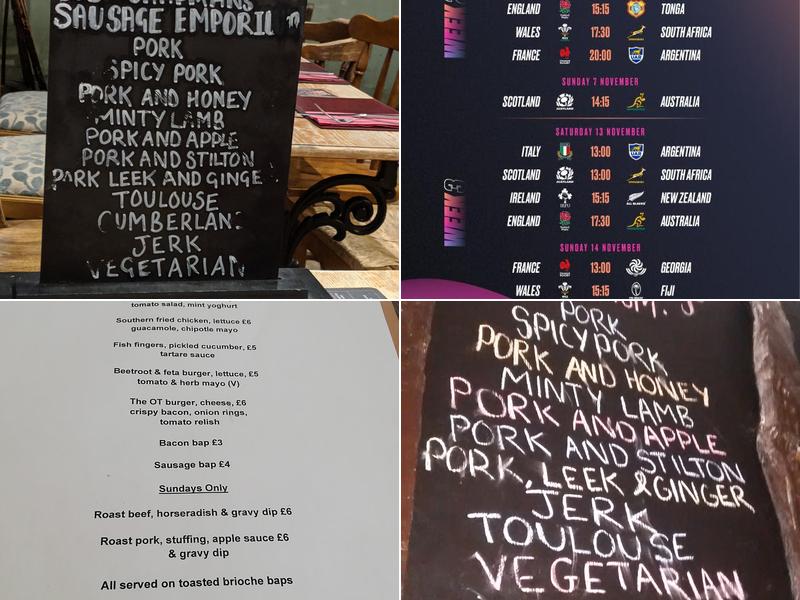 SAUSAGE EMPORIUM
PORK
SPICY PORK
PORK AND HONEY
MINTY LAMB
PORK AND APPLE
PORK AND STILTON
PORK LEEK AND GINGE
TOULOUSE
CUMBERLAND
JERK
VEGETARIAN
WEEK
ENGLAND 15:15 TONGA
WALES 17:30 SOUTH AFRICA
FRANCE 20:00 ARGENTINA
SUNDAY 7 NOVEMBER
SCOTLAND 14:15 AUSTRALIA
SATURDAY 13 NOVEMBER
ITALY 13:00 ARGENTINA
SCOTLAND 13:00 SOUTH AFRICA
IRELAND 15:15 NEW ZEALAND
ENGLAND 17:30 AUSTRALIA
WEEK
SUNDAY 14 NOVEMBER
FRANCE 13:00 GEORGIA
WALES 15:15 FIJI
tomato salad, mint yoghurt
Southern fried chicken, lettuce £6
guacamole, chipotle mayo
Fish fingers, pickled cucumber, £5
tartare sauce
Beetroot & feta burger, lettuce, £5
tomato & herb mayo (V)
The OT burger, cheese, £6
crispy bacon, onion rings,
tomato relish
Bacon bap £3
Sausage bap £4
Sundays Only
Roast beef, horseradish & gravy dip £6
Roast pork, stuffing, apple sauce £6
& gravy dip
All served on toasted brioche baps
PORK
SPICY PORK
PORK AND HONEY
MINTY LAMB
PORK AND APPLE
PORK AND STILTON
PORK, LEEK & GINGER
JERK
TOULOUSE
VEGETARIAN